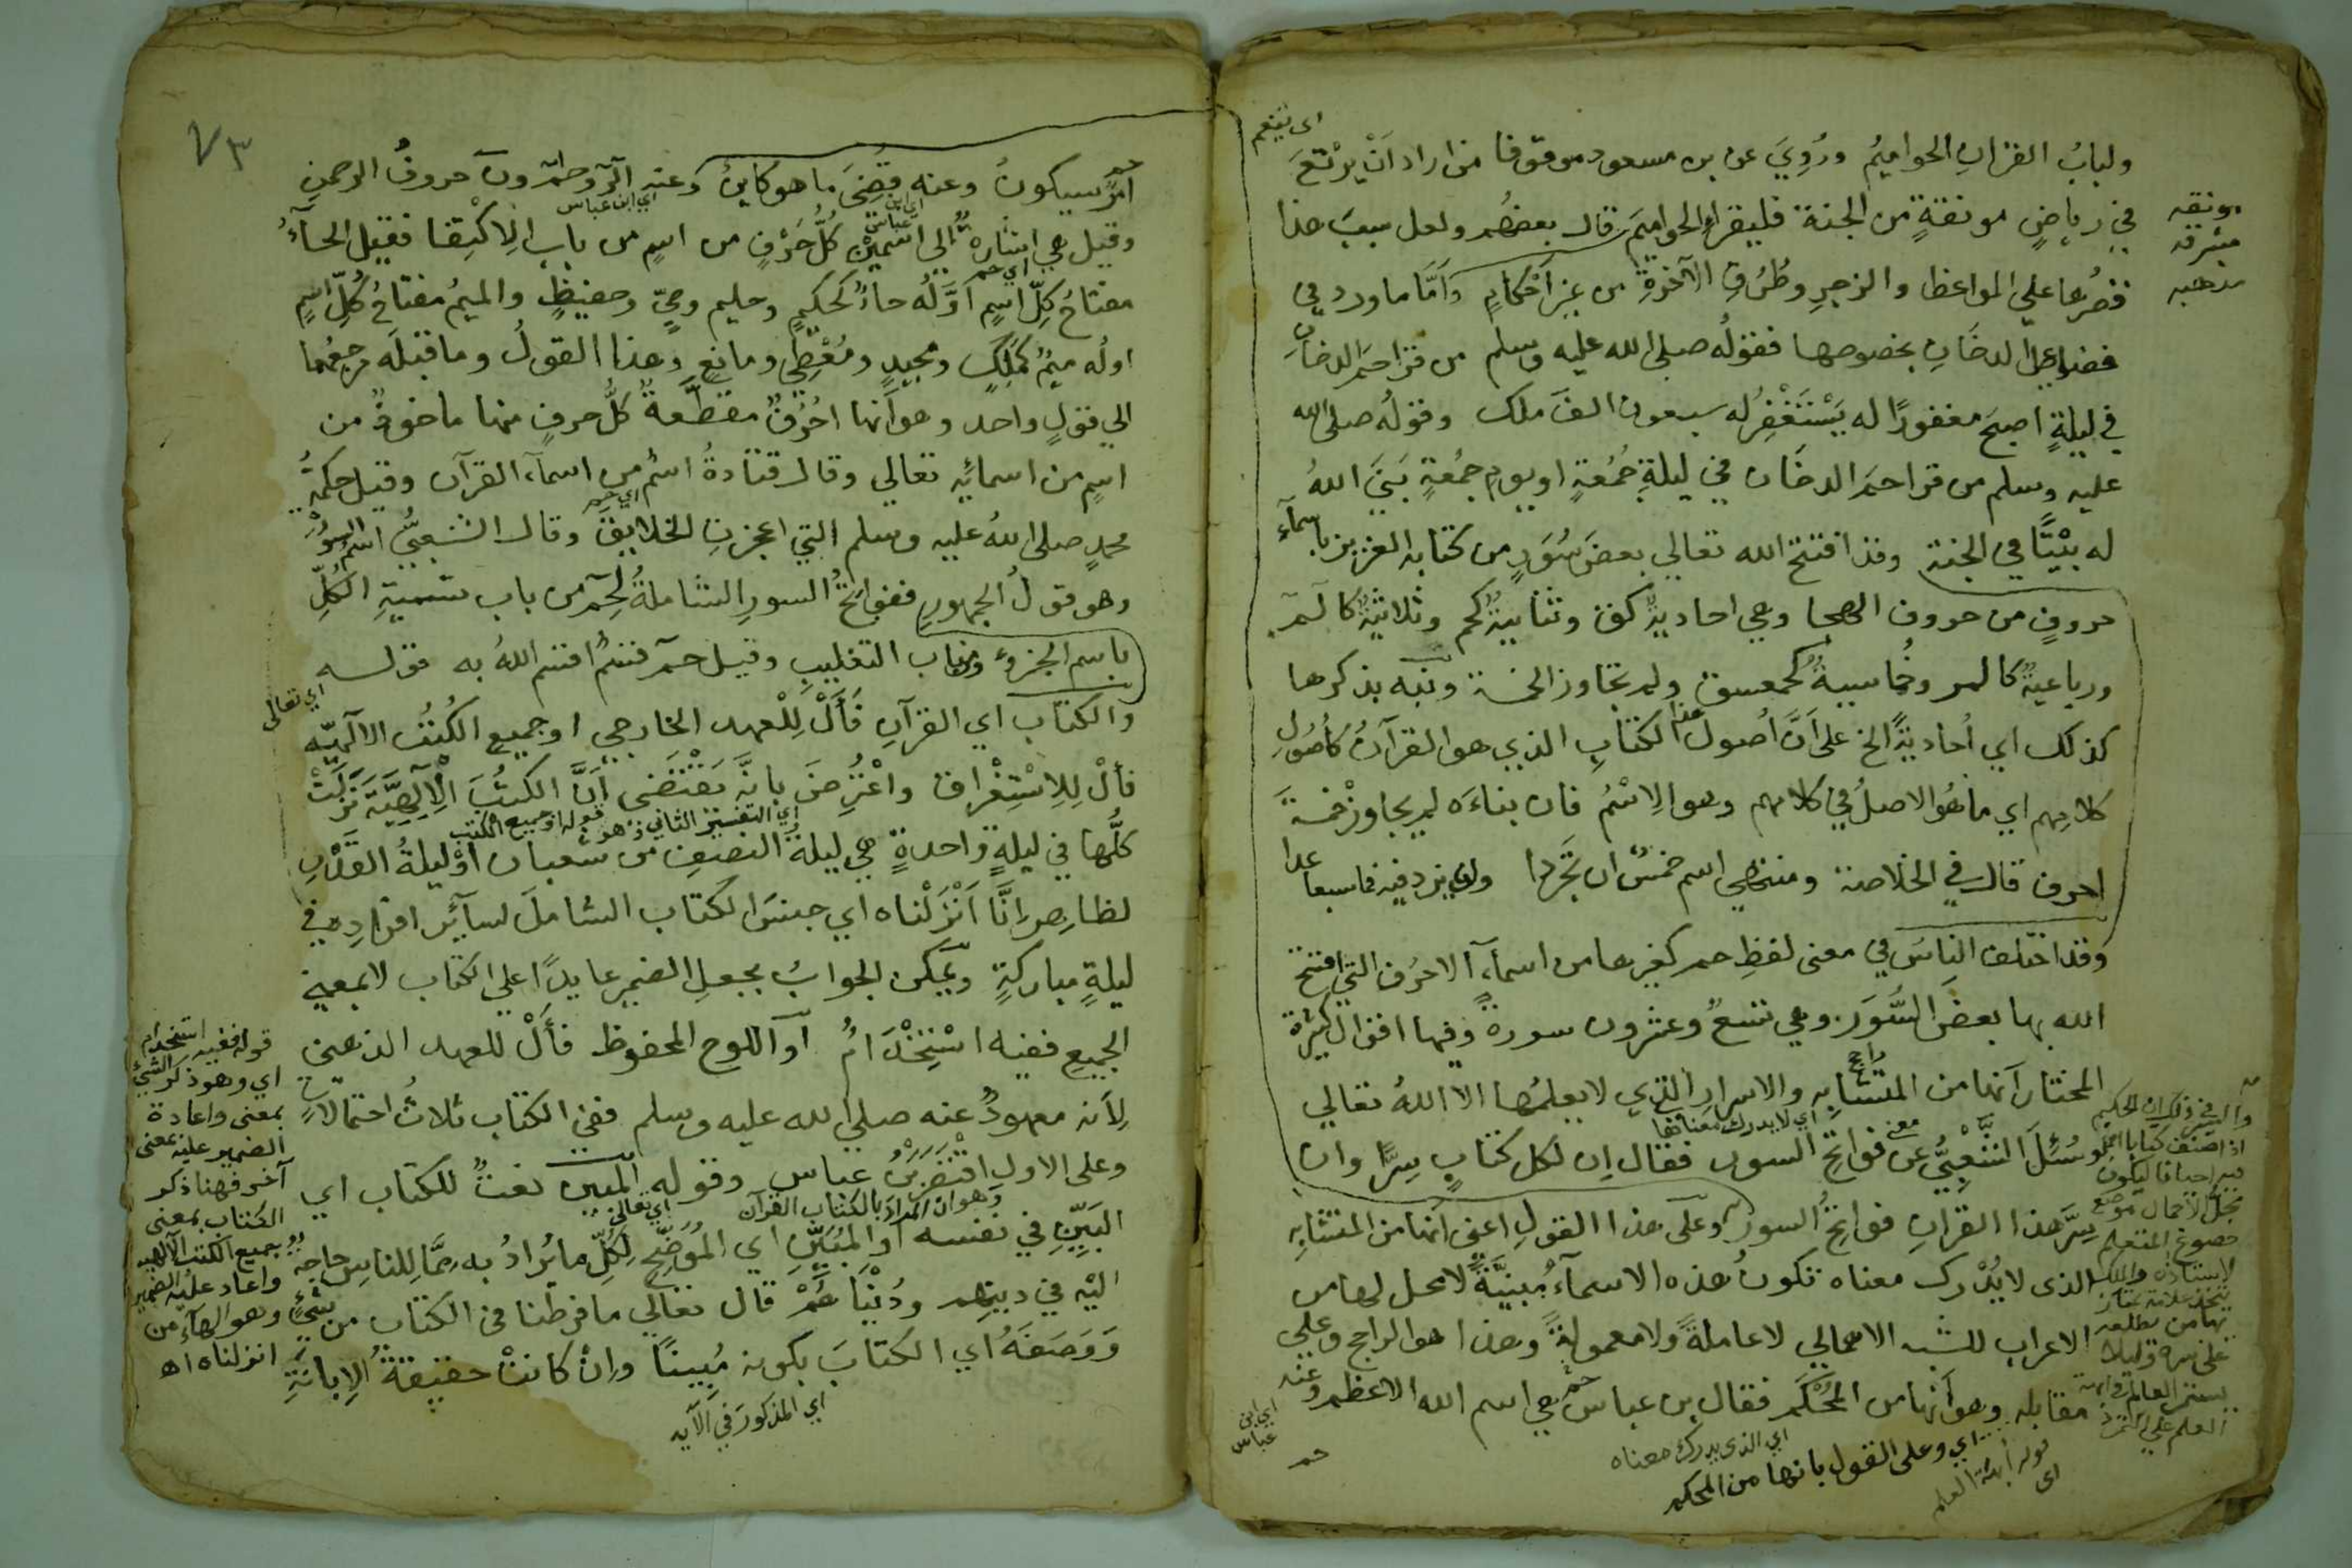 ولبابُ القران الحواميمُ ورُوِيَ عن بن مسعود موقوفا من اراد اَنْ يرْتَعَ
اى يتنعم
في رياضٍ مونقةٍ من الجنة فليقراء الحواميمَ قال بعضهُم ولعل سببَ هذا
مونقه
مشرقه
مذهبه
قصرُها على المواعظ والزجرِ وطُرُقِ الآخرةِ من غيرِ اَحْكامٍ واَمَّا ما ورد في
فضل الدخانِ بخصوصها فقولُه صلى الله عليه وسلم من قرا حمَ الدخانِ
في ليلةٍ اصبحَ مغفورًا له يَسْتَغْفِرُ له سبعون الفَ ملك وقولُه صلى الله
عليه وسلم من قرا حمَ الدخان في ليلةِ جُمُعةٍ او يومِ جمُعةٍ بَنَى اللهُ
له بيْتًا في الجنة وقد افتتح الله تعالي بعضَ سُوَرٍ من كتابه العزيز باسمآء
حروفٍ من حروف الهجا وهي احاديةٌ كقۤ وثنائيةٌ كحم وثلاثيةٌ كالمۤ
ورباعيةٌ كالمر وخُماسيةٌ كحمعسق ولم تتجاوز الخمسة ونبّه بذكرها
كذلك اي أحاديةً الخ على اَنَّ أصولَ هذا الكتابِ الذي هو القرآنُ كأصولِ
كلامِهم اي ما هُوَ الاصلُ في كلامهم وهو الِاسْمُ فان بناءَه لم يجاوزْ خمسةَ
احرف قال في الخلاصة ومنتهى اسم خمسٌ ان تجرّدا وان يزد فيه فما سبعا عدا
وقد اختلف الناسُ في معنى لفظِ حم كغيرها من اسمآءِ الاحرُف التي افتتح
الله بها بعضَ السُّوَر وهي تسعٌ وعشرون سورةً وفيها اقوالٌ كثيرةٌ
المختار اَنها من المتشابه والاسرارِ التي لا يعلمُها الا اللهُ تعالي
اي لا يدرك معناها
وسُئِلَ الشَّعْبِيُّ عن معنى فواتحِ السور فقال اِن لكل كتابٍ سِرًّا وان
سِرَّ هذا القرانِ فواتحُ السور وعلى هذا القولِ اعنى اَنها من المتشابه
الذى لا يُدْرك معناه تكونُ هذه الاسمآءُ مبنِيَّةً لا محل لها من
الاعراب للشبه الاهمالي لا عاملةً ولا معمولةً وهذا هو الراجح وعلى
مقابله وهو اَنها من المُحْكَم فقال بن عباس حم هي اسم الله الاعظم وعنه
اي ابن
عباس
اي الذي يدرك معناه
اي وعلى القول بانها من المحكم
حم
٧٣
امرٌ سيكونُ وعنه قُضِيَ ما هو كاينٌ وعنه الۤر وحمۤ ونۤ حروفُ الرحمنِ
اي ابن عباس
وقيل هي اشارةٌ الى اسمَيْن كلُّ حَرْفٍ من اسمٍ من بابِ الِاكْتِفا فقيل الحآءُ
اي حم
مفتاحُ كلِّ اسمٍ اَوَّلُه حاءٌ كحكيمٍ وحليم وحيٍّ وحفيظٍ والميمُ مفتاحُ كُلِّ اسمٍ
اولُه ميمٌ كمَلِكٍ ومجيدٍ ومُعْطِي ومانعٍ وهذا القولُ وما قبلَه مرجعُهما
الي قولٍ واحد وهو اَنها احْرُفٌ مقطَّعةٌ كلُّ حرفٍ منها ماخوذٌ من
اسمٍ من اسمائِه تعالي وقال قتادةُ اسمٌ من اسمآء القرآن وقيل حكمةُ
محمدٍ صلى اللهُ عليه وسلم التي اعجزتِ الخلايقَ وقال الشعبيُّ اسمُ السُّوَرِ
وهو قولُ الجمهورِ ففواتحُ السورِ الشاملةُ لحمۤ من باب تسميةِ الكُلِّ
باسم الجزءِ ومن باب التغليبِ وقيل حمۤ قسمٌ اقسم اللهُ به قوله
اي تعالى
والكتاب اي القرآنِ فَأَلْ لِلْعهد الخارجي او جميع الكُتُب الالهيّه
فألْ لِلِاسْتِغْراق واعْتُرِضَ بانَّه يَقْتَضى اَنَّ الكتُبَ الْاِلَهِيَّةَ نَزَلَتْ
اي التفسير الثاني وهو قوله او جميع الكتب
كلُّها في ليلةٍ واحدةٍ هي ليلةُ النصفِ من شعبان اَوْ ليلةُ القَدْرِ
لظاهر اِنَّا اَنْزَلْناه اي جنسَ الكتاب الشاملَ لسآئرِ افرادِه في
ليلةٍ مباركةٍ ويُمكن الجوابُ بجعلِ الضميرِ عايدًا على الكتاب لا بمعنى
الجميع ففيه اسْتِخْدَامٌ اَو اللوح المحفوظ فأَلْ للعهد الذهنى
لِاَنه معهودٌ عنه صلي الله عليه وسلم ففى الكتاب ثلاثُ احتمالاتٍ
وعلى الاول اقْتَصَرَ بْنُ عباس وقوله المبين نعتٌ للكتاب اي
وهو ان المرادَ بالكتاب القرآن
اي تعالى
البَيِّنِ في نفسه اَوِ المُبَيِّنِ اي المُوَضِّحِ لِكُلِّ ما يُرادُ به مِمَّا لِلناسِ حاجةٌ
اليْه في دينهم ودُنْيَاهُمْ قال تعالي ما فرطنا في الكتاب من شيءٍ
وَوَصَفَهُ اي الكتابَ بكونه مُبينًا واِنْ كانتْ حقيقةُ الِابانَةِ
اي المذكورَ في الآيه
قوله ففيه استخدام
اي وهو ذكر الشئ
بمعنى واعادة
الضمير عليه بمعنى
آخر فهنا ذكر
الكتاب بمعنى
جميع الكتب الالهيه
واعاد عليه الضمير
وهو الهآء من
انزلناه اه